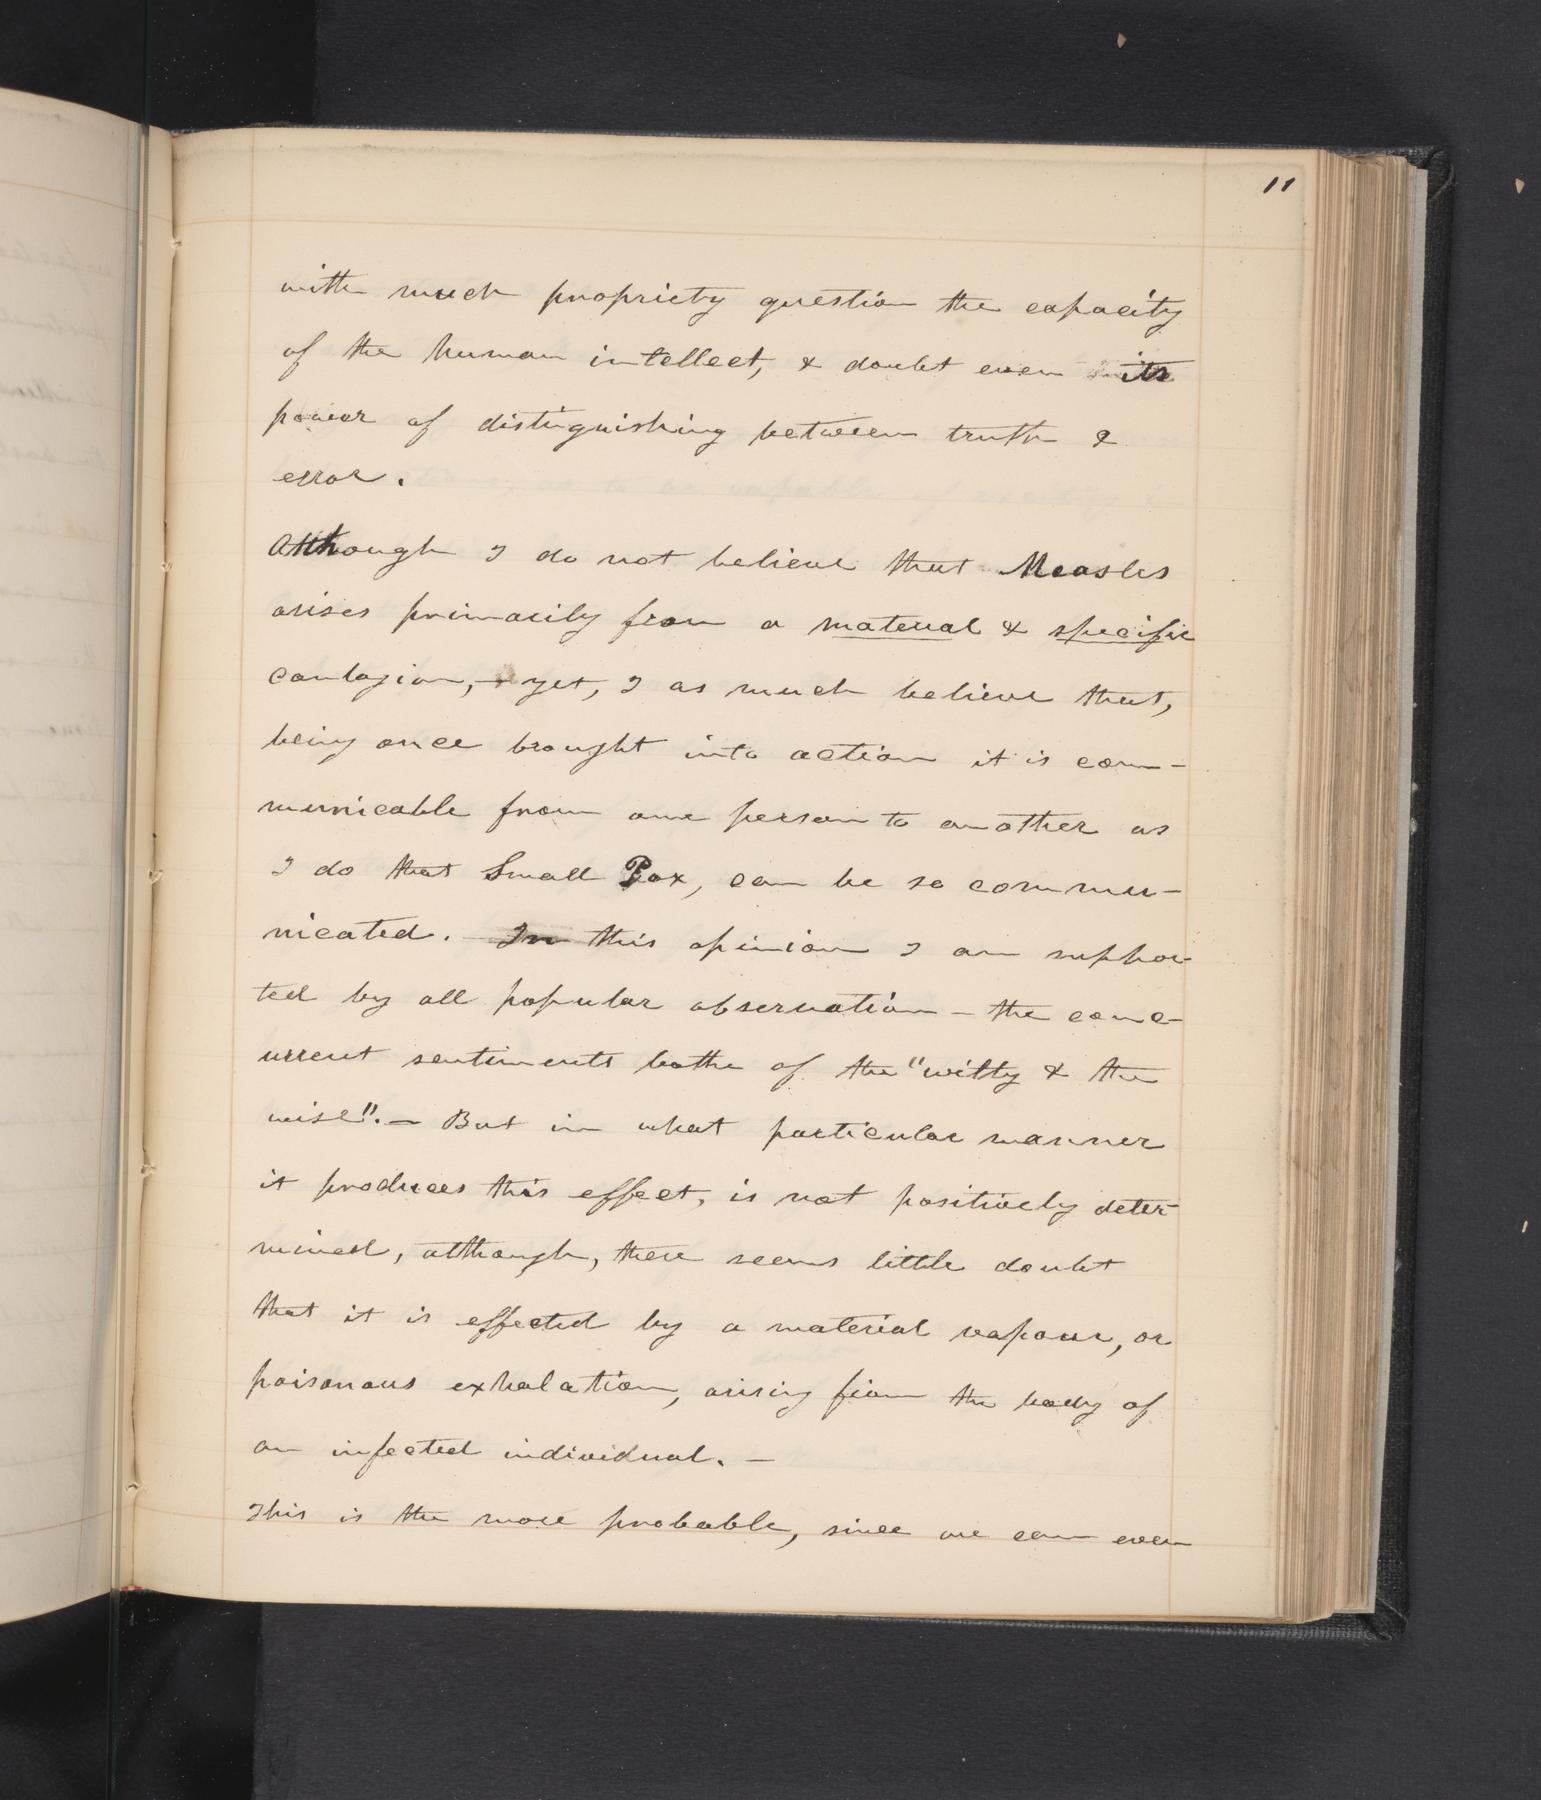 11
with much propriety question the capacity
of the human intellect, & doubt even its
power of distinguishing between truth &
error.
Although I do not believe that Measles
arises primarily from a material & specific
contagion, - yet, I as much believe that,
being once brought into action it is com-
municable from one person to another as
I do that Small Pox, can be so commu-
nicated. - In this opinion I am suppor-
ted by all popular observation - the conc-
urrent sentiments bothe of the "witty & the
wise". - But in what particular manner
it produces this effect, is not positively deter-
mined, although, there seems little doubt
that it is effected by a material vapour, or
poisonous exhalation, arising from the body of
an infected individual. -
This is the more probable, since we can even